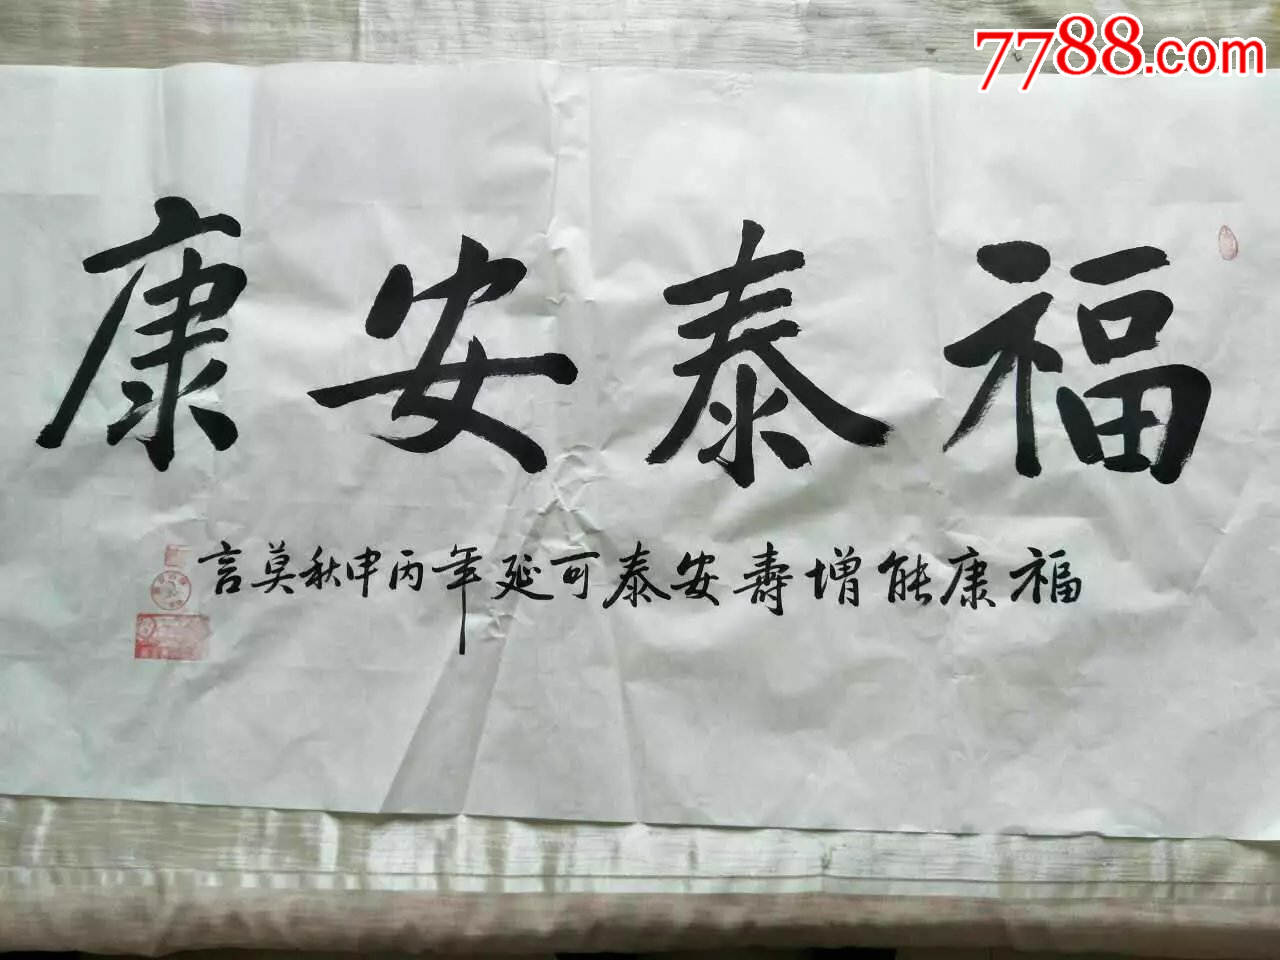 7788.com
福泰安康
福康能增壽安泰可延年丙申秋莫言